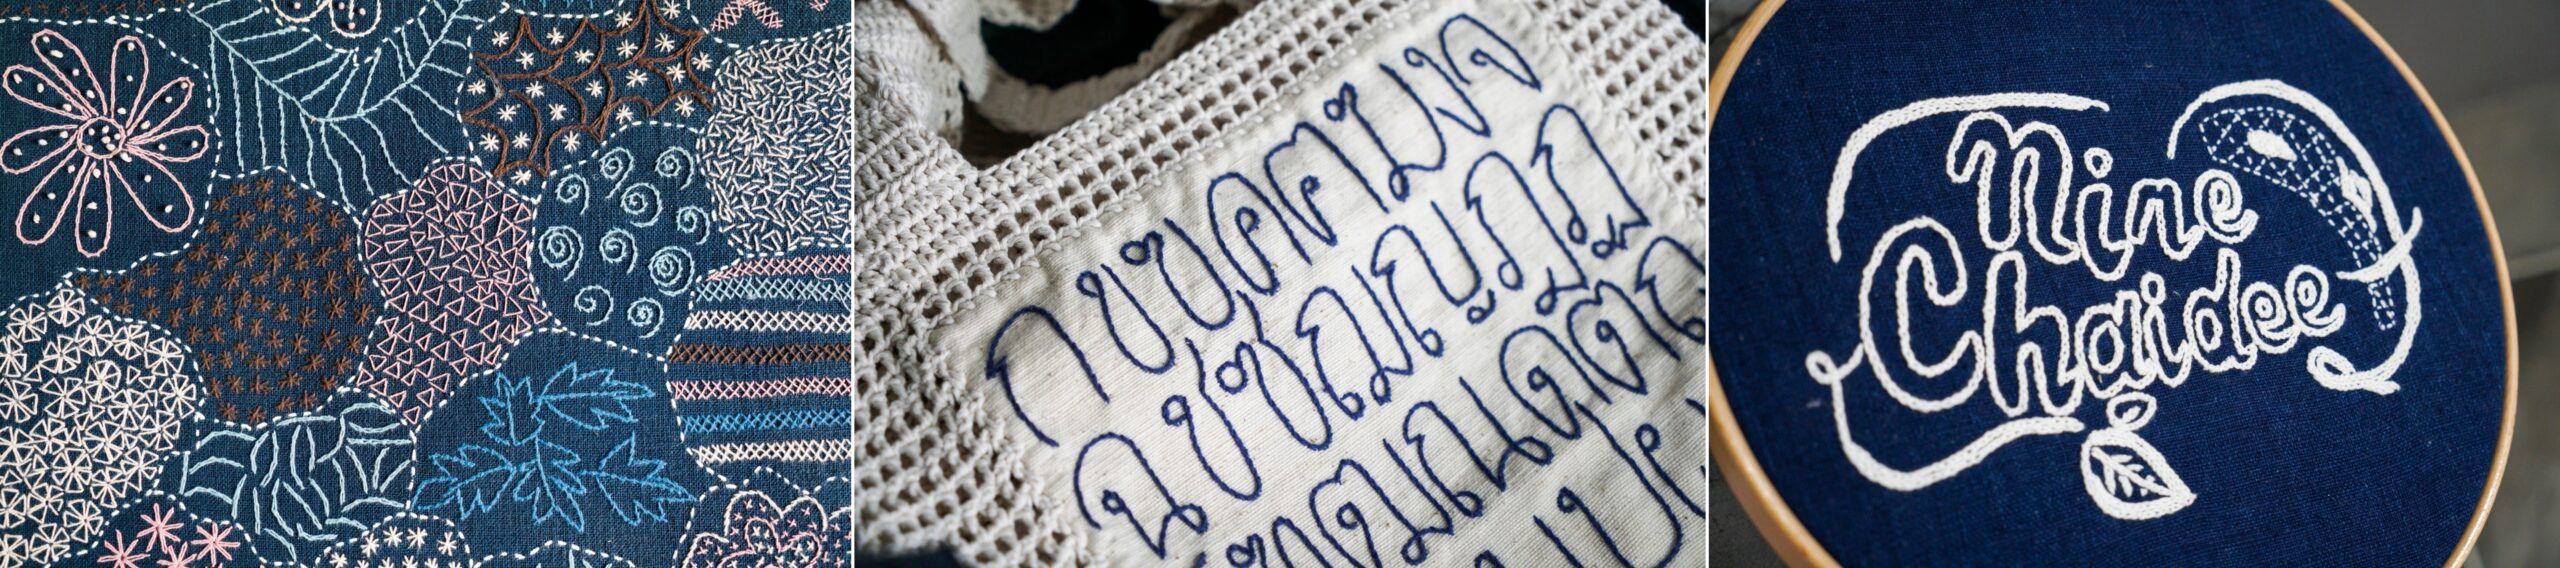 กขฃคฅฆงจ
ฉชซฌญฎฏ
ฑฒณดต
Nine
Chaidee